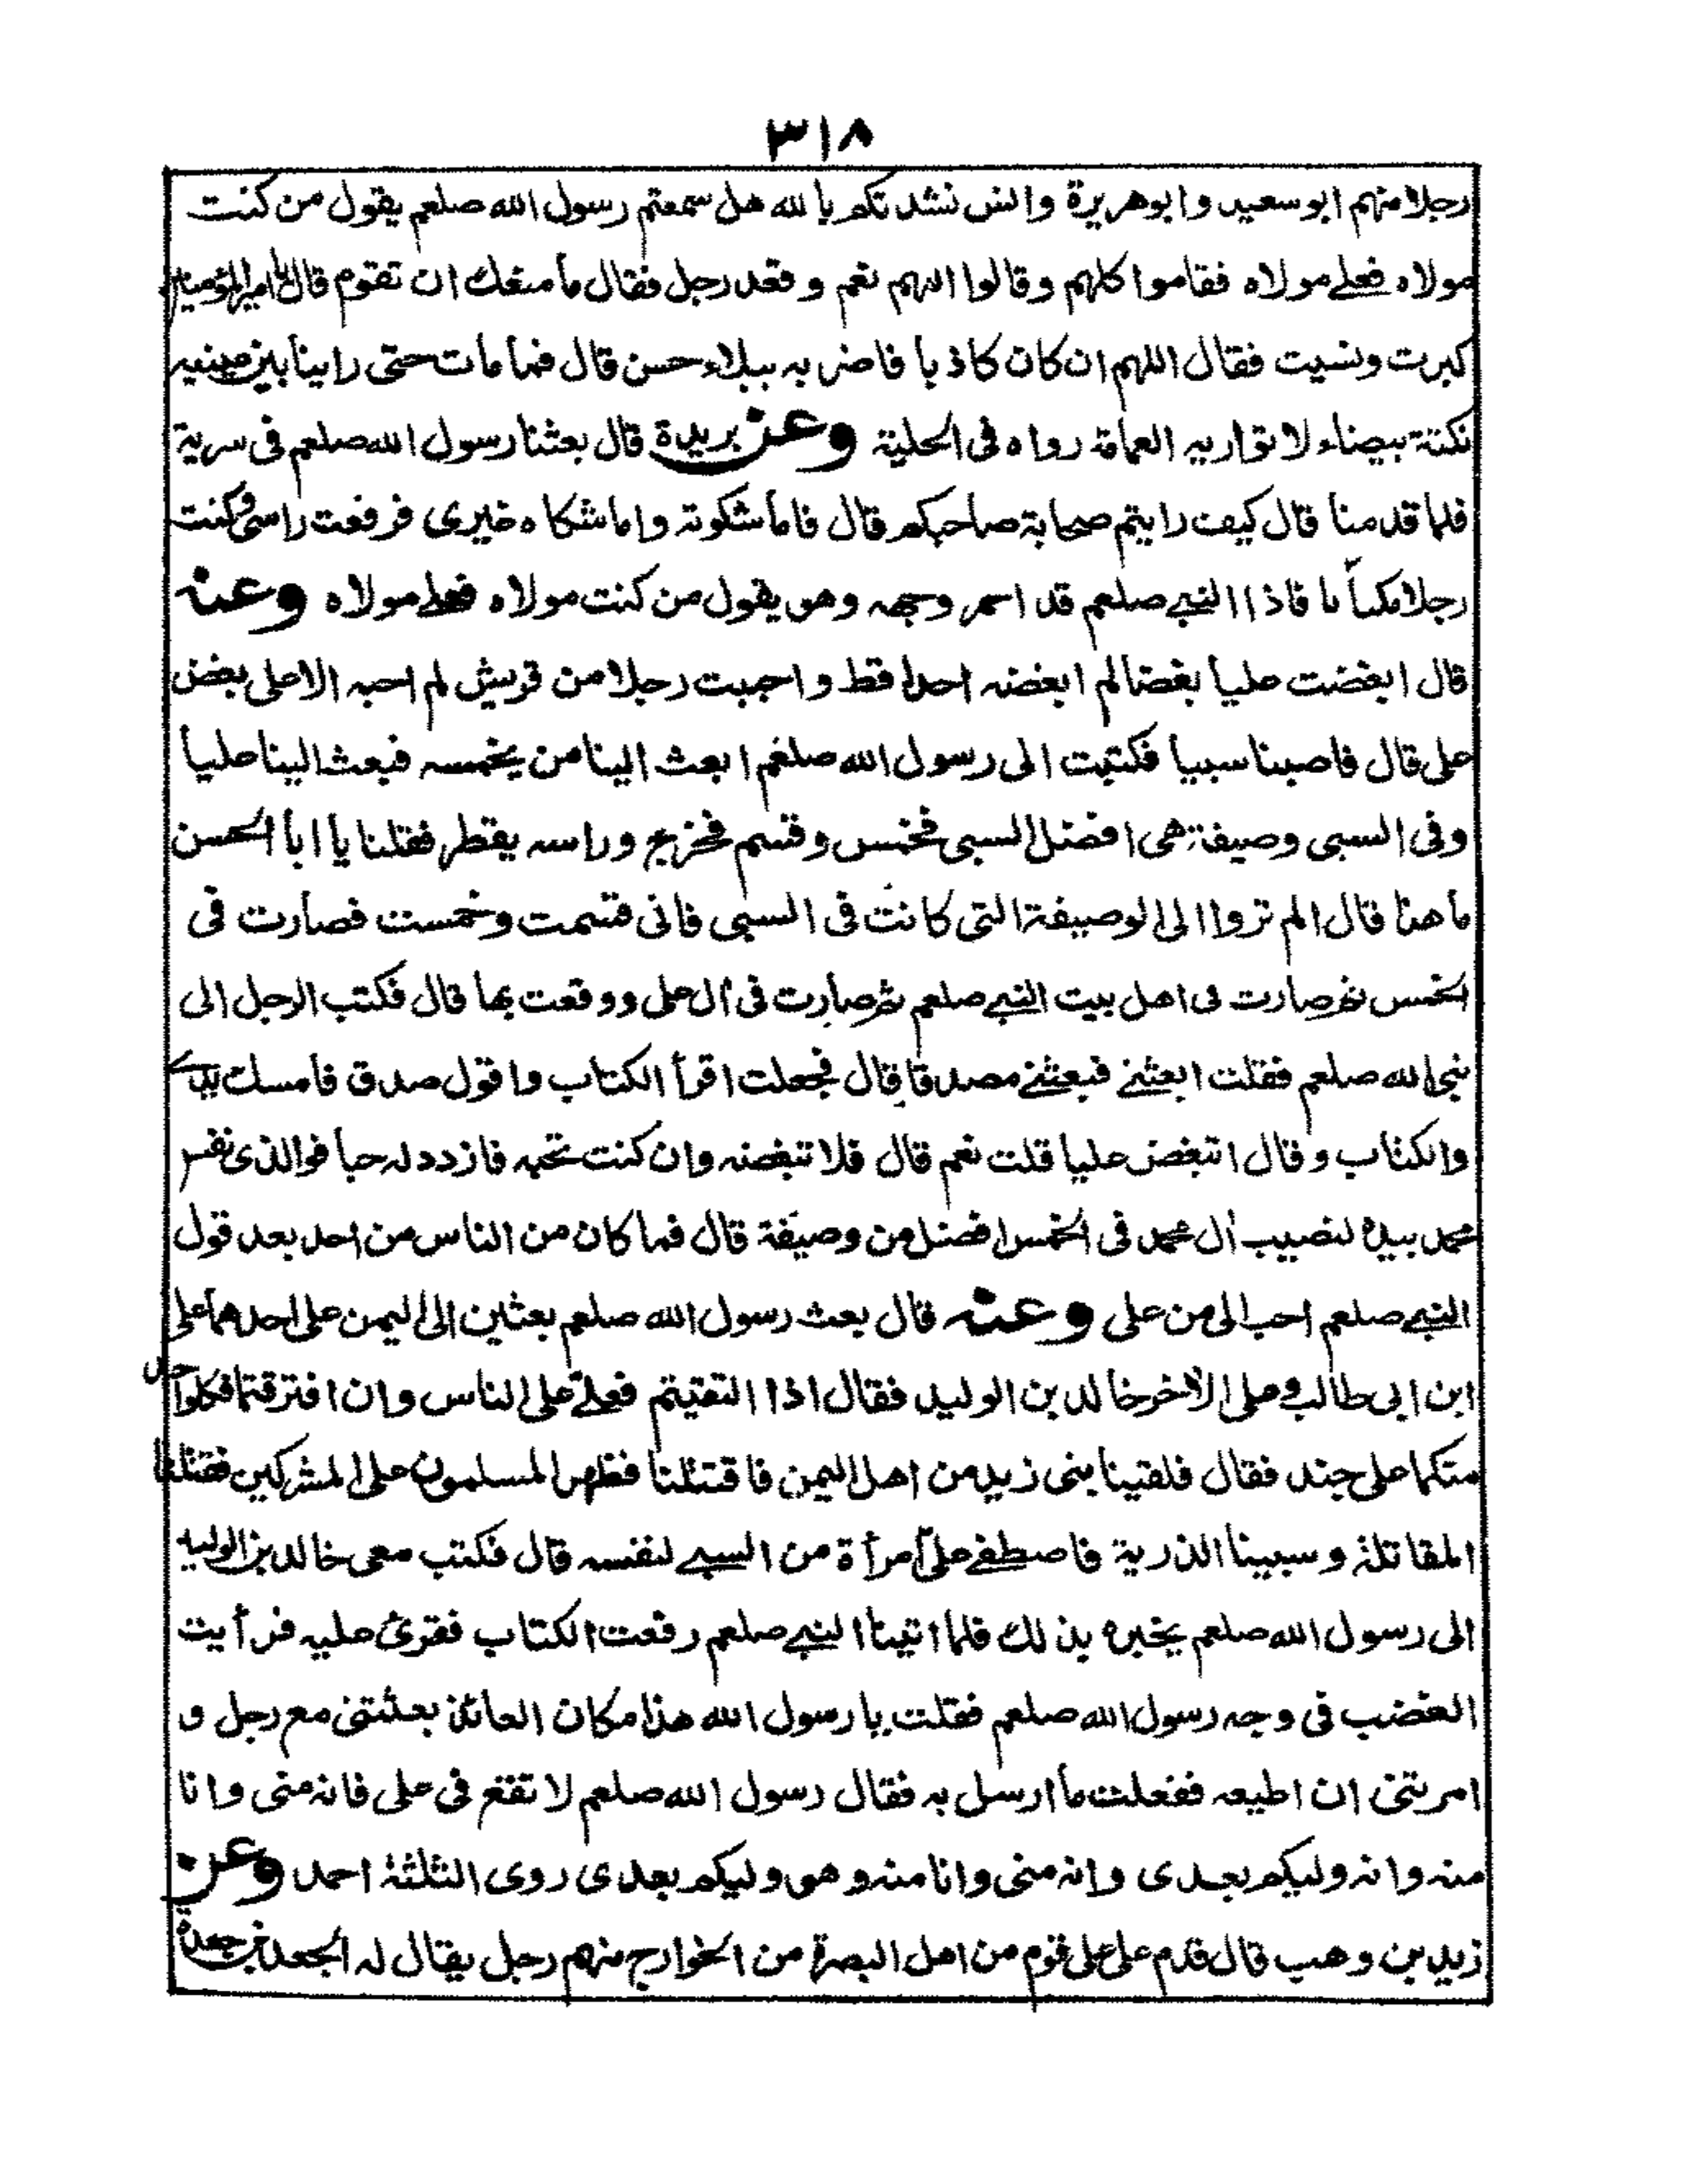 ٣١٨
رجلا منهم ابو سعيد و ابوهريرة و انس نشدتكم بالله هل سمعتم رسول الله صلعم يقول من كنت
مولاه فعلے مولاه فقاموا كلهم و قالوا اللهم نعم و قعد رجل فقال ما منعك ان تقوم قال يا امير المؤمنين
كبرت ونسيت فقال اللهم ان كان كاذبا فاضربه ببلاء حسن قال فما مات حتى راينا بين عينيه
نكتة بيضاء لا تواريه العمامة رواه فى الحلية وعن بريدة قال بعثنا رسول الله صلعم فى سرية
فلما قدمنا قال كيف رايتم صحابة صاحبكم قال فاما شكوته واما شكاه غيرى فرفعت راسى وكنت
رجلا مكبابا فاذا النبے صلعم قد احمر وجهه وهو يقول من كنت مولاه فعلے مولاه وعنه
قال ابغضت عليا بغضا لم ابغضه احدا قط و احببت رجلا من قريش لم احبه الا على بغض
على قال فاصبنا سبيا فكتبت الى رسول الله صلعم ابعث الينا من يخمسه فبعث الينا عليا
وفى السبى وصيفة هى افضل السبى فخمس وقسم فخرج وراسه يقطر فقلنا يا ابا الحسن
ما هذا قال الم تروا الى الوصيفة التى كانت فى السبى فانى قسمت وخمست فصارت فى
الخمس ثم صارت فى اهل بيت النبے صلعم ثم صارت فى أل على ووقعت بها قال فكتب الرجل الى
نبى الله صلعم فقلت ابعثنے فبعثنے مصدقا قال فجعلت اقرأ الكتاب واقول صدق فامسك يدے
والكتاب وقال اتبغض عليا قلت نعم قال فلا تبغضه وان كنت تحبه فازدد له حبا فوالذى نفس
محمد بيده لنصيب أل محمد فى الخمس افضل من وصيفة قال فما كان من الناس من احد بعد قول
النبے صلعم احب الى من على وعنه قال بعث رسول الله صلعم بعثين الى اليمن على احدهما على
ابن ابى طالب وعلى الأخر خالد بن الوليد فقال اذا التقيتم فعلے على الناس وان افترقتما فكلواحد
منكما على جند فقال فلقينا بنى زيد من اهل اليمن فاقتتلنا فظهر المسلمون على المشركين فقتلنا
المقاتلة وسبينا الذرية فاصطفے على امرأة من السبے لنفسه قال فكتب معى خالد بن الوليد
الى رسول الله صلعم يخبره بذلك فلما اتينا النبے صلعم رفعت الكتاب فقرئ عليه فرأيت
الغضب فى وجه رسول الله صلعم فقلت يا رسول الله هذا مكان العائذ بعثتنى مع رجل و
امرتنى ان اطيعه ففعلت ما ارسل به فقال رسول الله صلعم لا تقع فى على فانه منى وانا
منه وانه وليكم بعدى وانه منى وانا منه وهو وليكم بعدى روى الثلثة احمد وعن
زيد بن وهب قال قدم على على قوم من اهل البصرة من الخوارج منهم رجل يقال له الجعد بن بعجة